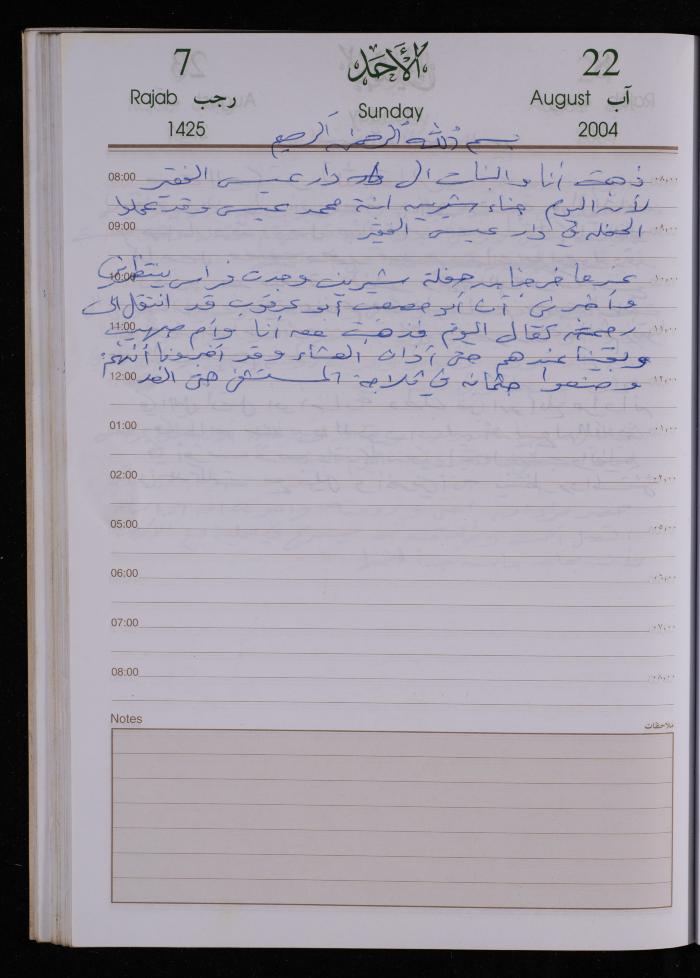 7
الأحد
22
Rajab رجب
Sunday
August آب
1425
2004
بسم الله الرحمن الرحيم
08:00 ذهبت أنا والبنات الى دار عيسى الفقير ٠٨:٠٠
لأن اليوم حناء شيرين ابنة محمد عيسى وقد عملوا
09:00 الحفلة في دار عيسى الفقير ٠٩:٠٠
10:00 عندما خرجنا من حفلة شيرين وجدت فراس ينتظرني ١٠:٠٠
وأخبرني أن أبو عرقوب قد انتقل الى
11:00 رحمته تعالى اليوم فذهبت معه أنا وأم صهيب ١١:٠٠
وبقينا عندهم حتى أذان العشاء وقد أخبرونا أنهم
12:00 وضعوا جثمانه في ثلاجة المستشفى حتى الغد ١٢:٠٠
01:00 ٠١:٠٠
02:00 ٠٢:٠٠
05:00 ٠٥:٠٠
06:00 ٠٦:٠٠
07:00 ٠٧:٠٠
08:00 ٠٨:٠٠
Notes ملاحظات